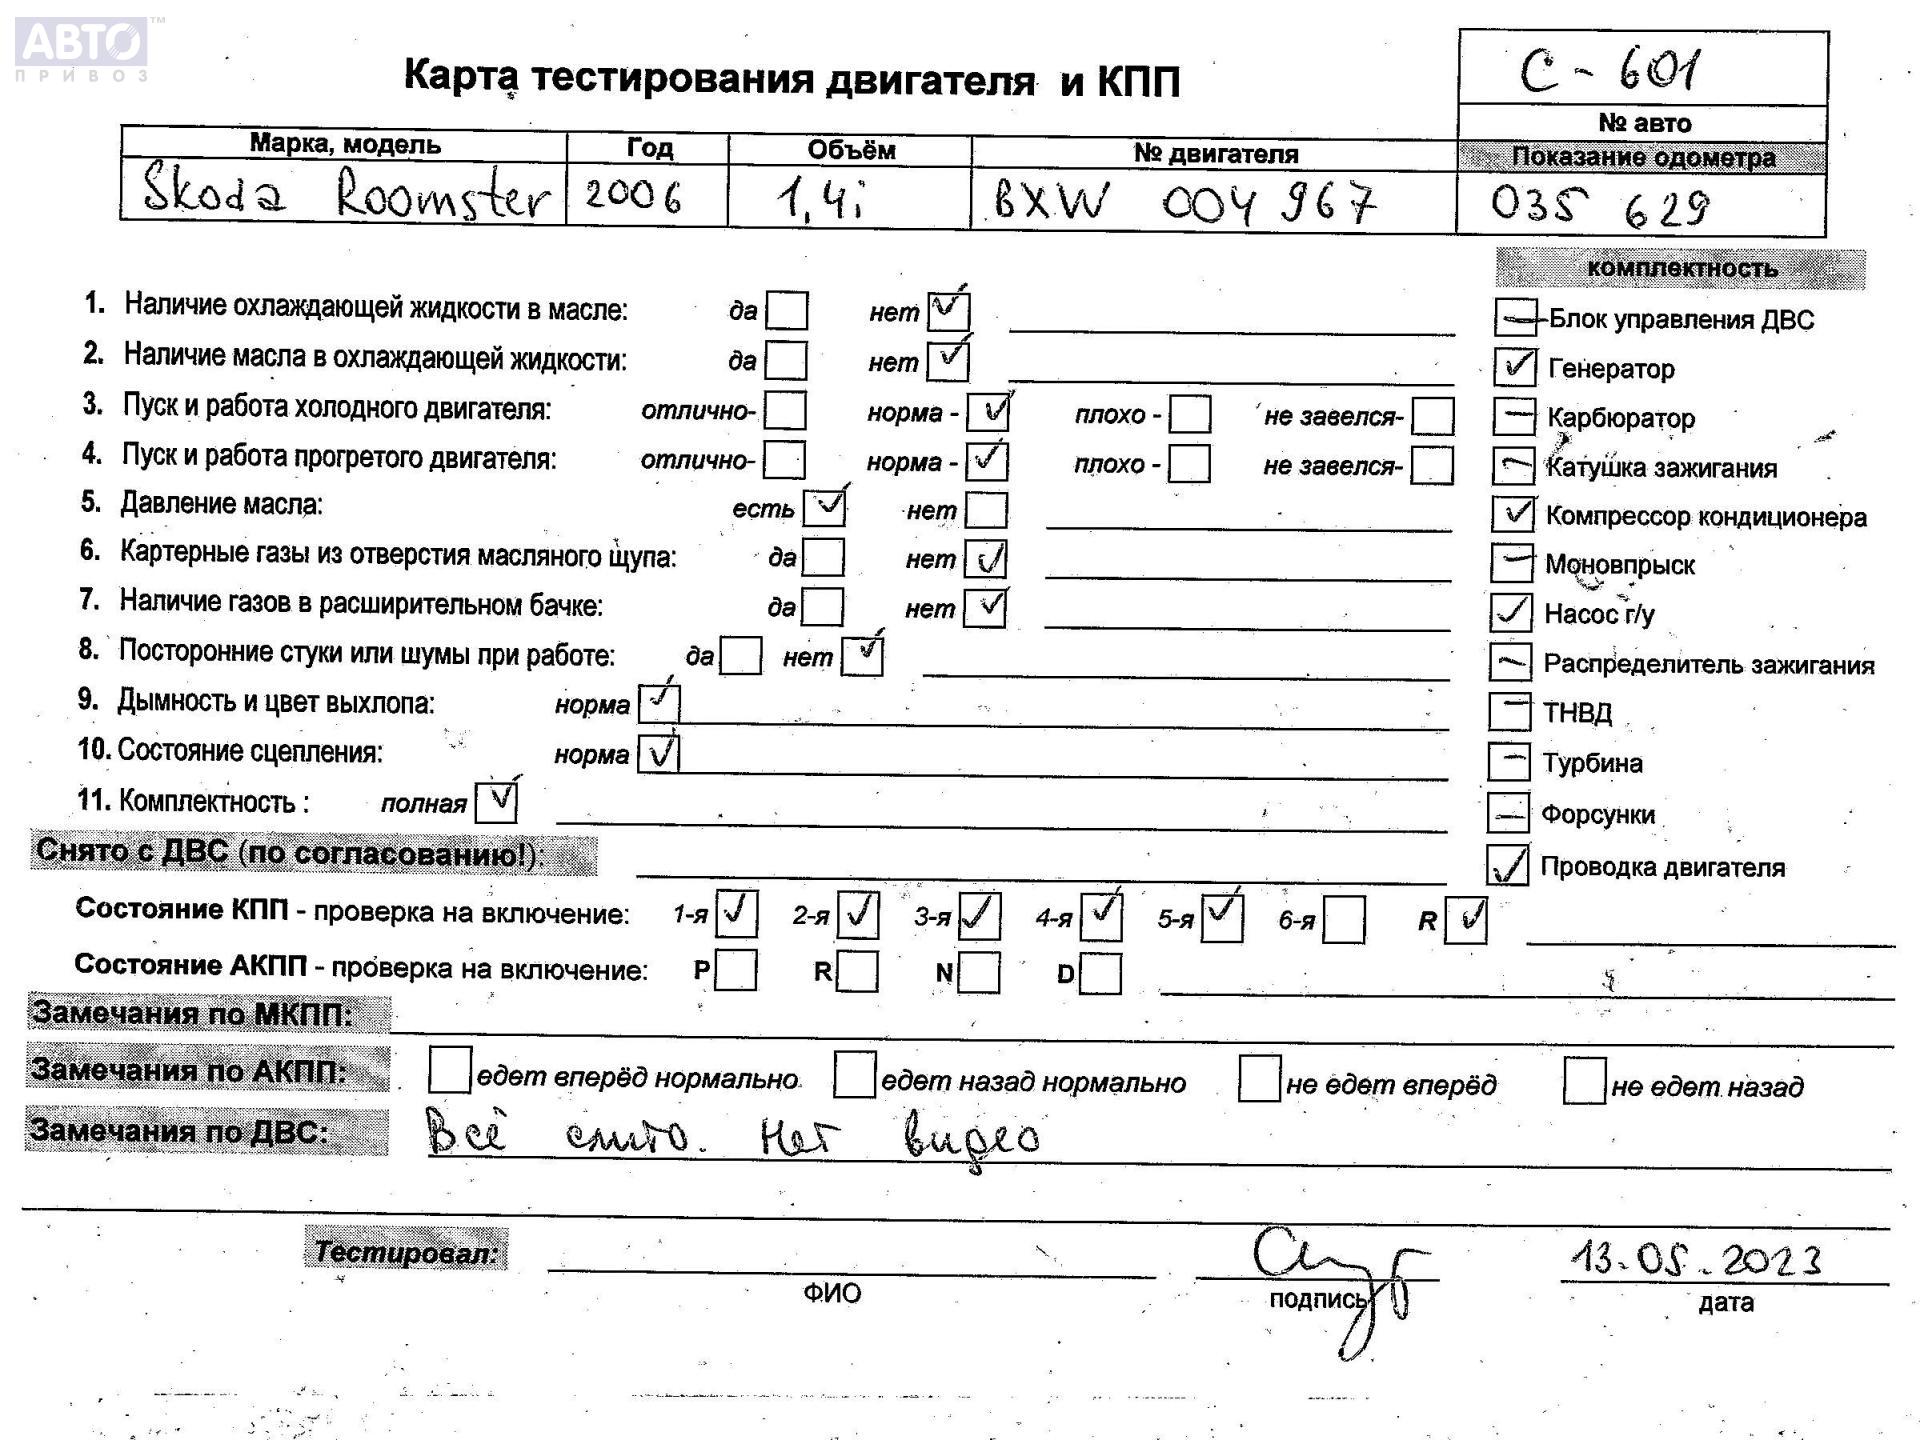 АВТО™
ПРИВОЗ
Карта тестирования двигателя и КПП
С - 601
№ авто
Марка, модель Год Объём № двигателя Показание одометра
Skoda Roomster 2006 1,4i BXW 004 967 035 629
комплектность
1. Наличие охлаждающей жидкости в масле: да нет ✓
2. Наличие масла в охлаждающей жидкости: да нет ✓
3. Пуск и работа холодного двигателя: отлично- норма - ✓ плохо - не завелся-
4. Пуск и работа прогретого двигателя: отлично- норма - ✓ плохо - не завелся-
5. Давление масла: есть ✓ нет
6. Картерные газы из отверстия масляного щупа: да нет ✓
7. Наличие газов в расширительном бачке: да нет ✓
8. Посторонние стуки или шумы при работе: да нет ✓
9. Дымность и цвет выхлопа: норма ✓
10. Состояние сцепления: норма ✓
11. Комплектность : полная ✓
— Блок управления ДВС
✓ Генератор
— Карбюратор
— Катушка зажигания
✓ Компрессор кондиционера
— Моновпрыск
✓ Насос г/у
— Распределитель зажигания
— ТНВД
— Турбина
— Форсунки
✓ Проводка двигателя
Снято с ДВС (по согласованию!):
Состояние КПП - проверка на включение: 1-я ✓ 2-я ✓ 3-я ✓ 4-я ✓ 5-я ✓ 6-я R ✓
Состояние АКПП - проверка на включение: P R N D
Замечания по МКПП:
Замечания по АКПП: едет вперёд нормально едет назад нормально не едет вперёд не едет назад
Замечания по ДВС: Всё слито. Нет видео
Тестировал: 13.05.2023
ФИО подпись дата